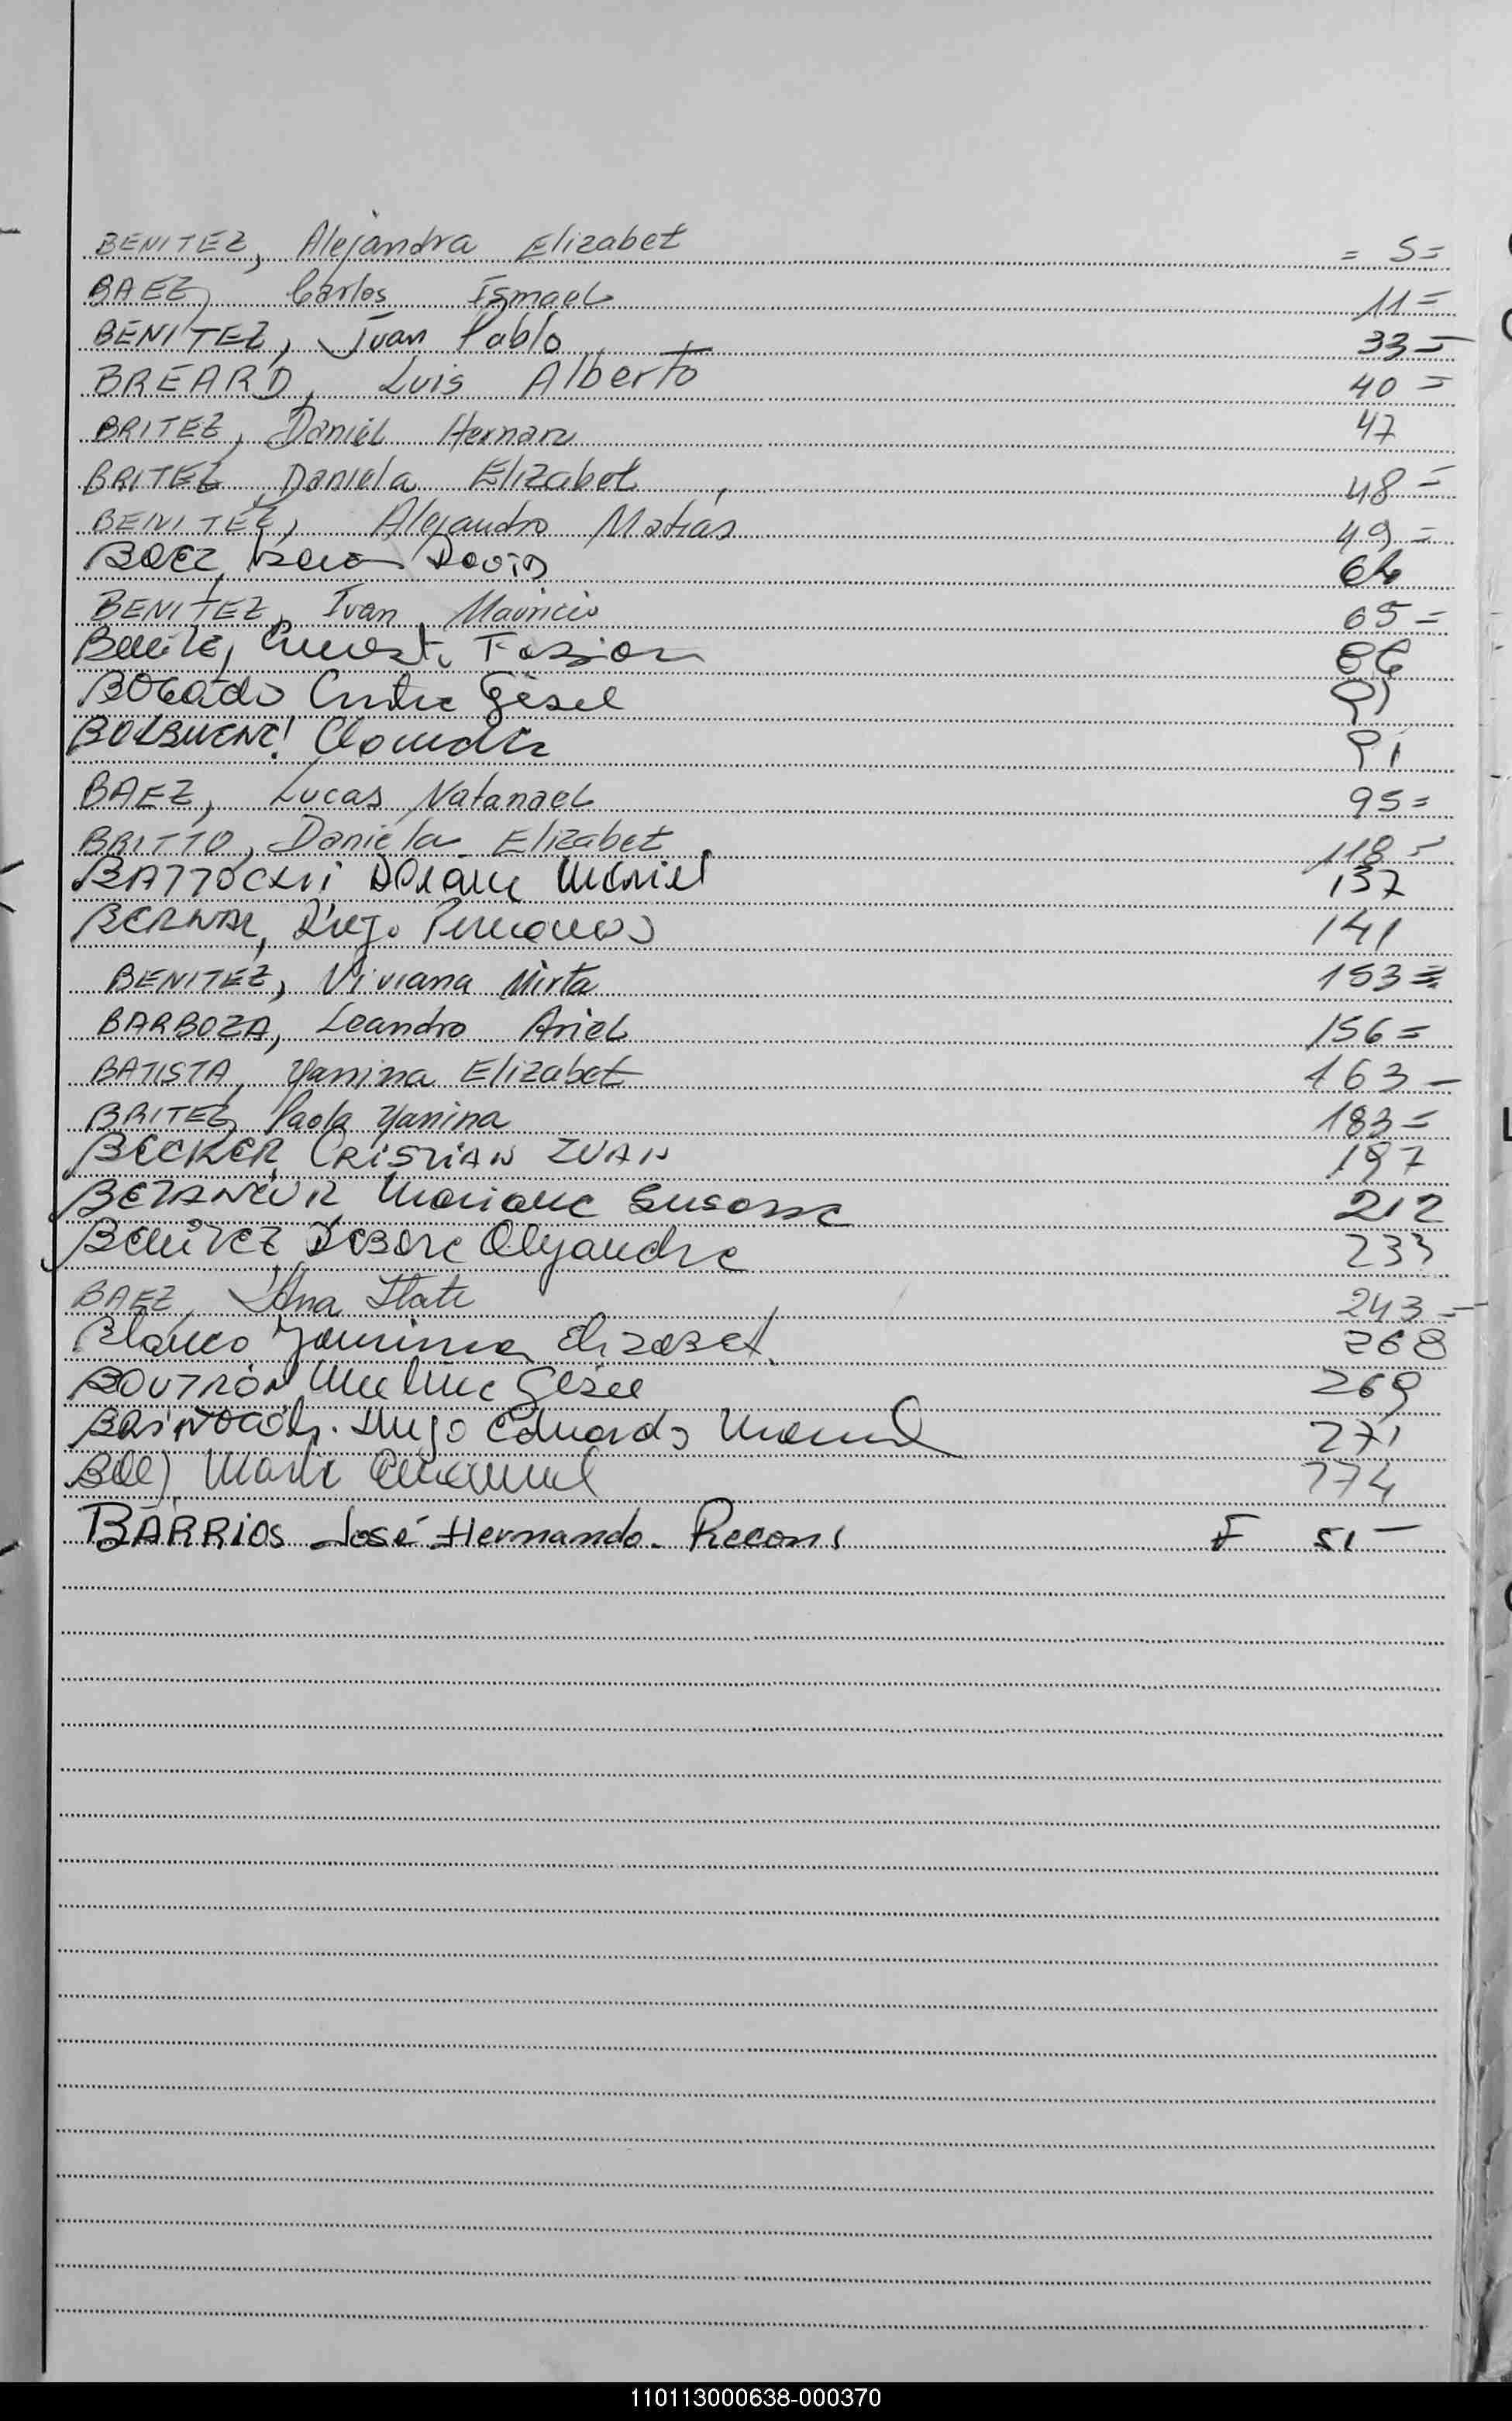 BENITEZ, Alejandra Elizabet = 5=
BAEZ, Carlos Ismael 11=
BENITEZ, Juan Pablo 33=
BREARD, Luis Alberto 40=
BRITEZ, Daniel Hernan 47
BRITEZ, Daniela Elizabet 48=
BENITEZ, Alejandro Matías 49=
BAEZ, David
BENITEZ, Ivan Mauricio 65=
Benitez, Fabian 86
BOGADO Gisel
Claudia 91
BAEZ, Lucas Natanael 95=
BRITTO, Daniela Elizabet 118=
BATTOCHI 137
BERNAL, Diego 141
BENITEZ, Viviana Mirta 153=
BARBOZA, Leandro Ariel 156=
BATISTA, Yanina Elizabet 163-
BRITEZ, Paola Yanina 183=
BECKER, CRISTIAN IVAN 197
BETANCUR, Mariana Susana 212
Benitez, Debora Alejandra 233
BAEZ, Ana 243-
Blanco Elizabet. 268
BOUTRON Gisel 269
Hugo Eduardo Manuel 271
274
BARRIOS José Hernando. Recon. F 51-
110113000638-000370